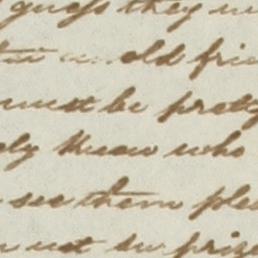 guess they w
old frie
must be pretty
ly know who
see them plea
not surprize